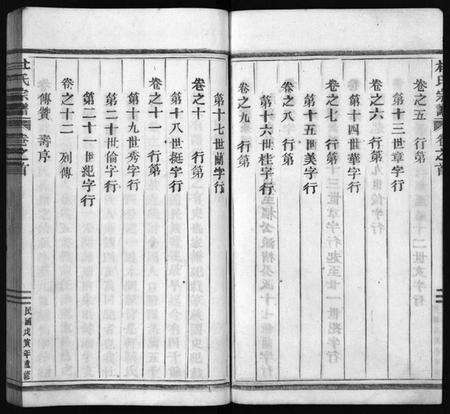 杜氏宗譜 卷之首
卷之五 行第
第十三世章字行
卷之六 行第
第十四世華字行
卷之七 行第
第十五世美字行
卷之八 行第
第十六世桂字行
卷之九 行第
第十七世蘭字行
卷之十 行第
第十八世挺字行
卷之十一 行第
第十九世秀字行
第二十世倫字行
第二十一世紀字行
卷之十二 列傳
傳贊 壽序
杜氏宗譜 卷之首 民國戊寅年重修